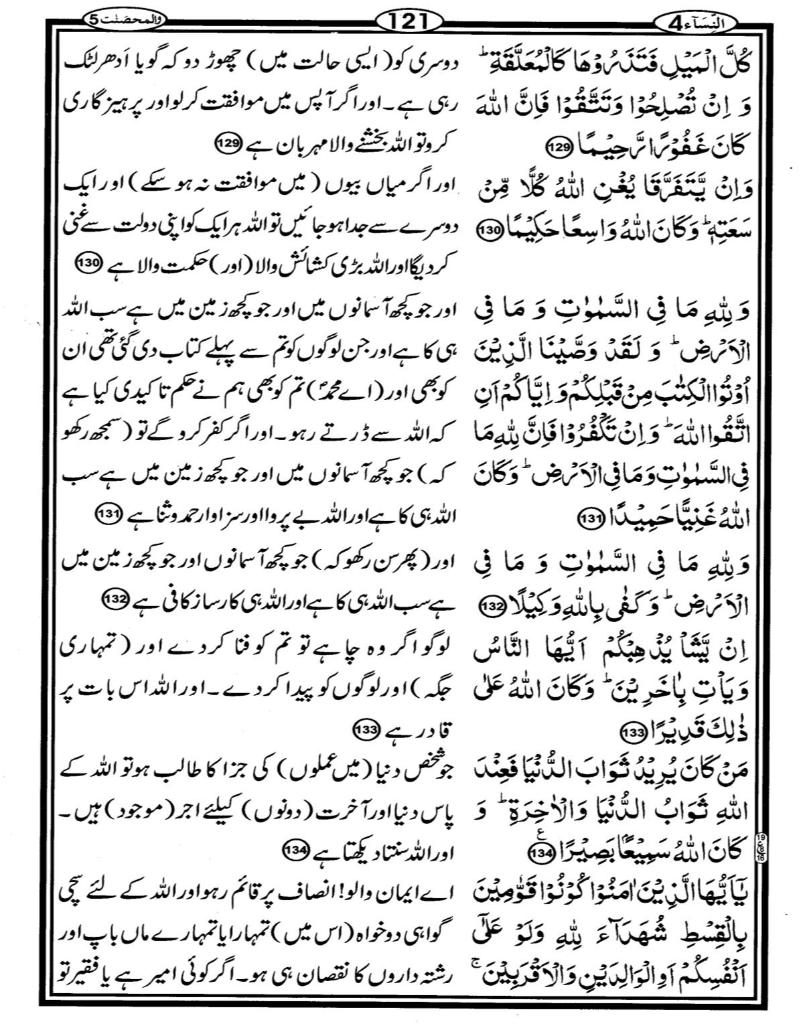 النِّسَآء 4
121
والمحصنٰت 5
كُلَّ الْمَيْلِ فَتَذَرُوْهَا كَالْمُعَلَّقَةِ ؕ
وَ اِنْ تُصْلِحُوْا وَتَتَّقُوْا فَاِنَّ اللّٰهَ
كَانَ غَفُوْرًا رَّحِيْمًا 129
وَاِنْ يَّتَفَرَّقَا يُغْنِ اللّٰهُ كُلًّا مِّنْ
سَعَتِهٖ ؕ وَكَانَ اللّٰهُ وَاسِعًا حَكِيْمًا 130
وَلِلّٰهِ مَا فِى السَّمٰوٰتِ وَ مَا فِى
الْاَرْضِ ؕ وَ لَقَدْ وَصَّيْنَا الَّذِيْنَ
اُوْتُوا الْكِتٰبَ مِنْ قَبْلِكُمْ وَ اِيَّاكُمْ اَنِ
اتَّقُوا اللّٰهَ ؕ وَ اِنْ تَكْفُرُوْا فَاِنَّ لِلّٰهِ مَا
فِى السَّمٰوٰتِ وَمَا فِى الْاَرْضِ ؕ وَكَانَ
اللّٰهُ غَنِيًّا حَمِيْدًا 131
وَلِلّٰهِ مَا فِى السَّمٰوٰتِ وَ مَا فِى
الْاَرْضِ ؕ وَكَفٰى بِاللّٰهِ وَكِيْلًا 132
اِنْ يَّشَاْ يُذْهِبْكُمْ اَيُّهَا النَّاسُ
وَيَاْتِ بِاٰخَرِيْنَ ؕ وَكَانَ اللّٰهُ عَلٰى
ذٰلِكَ قَدِيْرًا 133
مَنْ كَانَ يُرِيْدُ ثَوَابَ الدُّنْيَا فَعِنْدَ
اللّٰهِ ثَوَابُ الدُّنْيَا وَالْاٰخِرَةِ ؕ وَ
كَانَ اللّٰهُ سَمِيْعًۢا بَصِيْرًا 134 ع
يٰۤاَيُّهَا الَّذِيْنَ اٰمَنُوْا كُوْنُوْا قَوّٰمِيْنَ
بِالْقِسْطِ شُهَدَآءَ لِلّٰهِ وَلَوْ عَلٰٓى
اَنْفُسِكُمْ اَوِ الْوَالِدَيْنِ وَالْاَقْرَبِيْنَ ۚ
دوسری کو (ایسی حالت میں) چھوڑ دو کہ گویا اَدھر لٹک
رہی ہے۔ اور اگر آپس میں موافقت کرلو اور پرہیزگاری
کرو تو اللہ بخشنے والا مہربان ہے 129
اور اگر میاں بیوں (میں موافقت نہ ہوسکے) اور ایک
دوسرے سے جدا ہو جائیں تو اللہ ہر ایک کو اپنی دولت سے غنی
کردیگا اور اللہ بڑی کشائش والا (اور) حکمت والا ہے 130
اور جو کچھ آسمانوں میں اور جو کچھ زمین میں ہے سب اللہ
ہی کا ہے اور جن لوگوں کو تم سے پہلے کتاب دی گئی تھی ان
کو بھی اور (اے محمدؐ) تم کو بھی ہم نے حکم تاکیدی کیا ہے
کہ اللہ سے ڈرتے رہو۔ اور اگر کفر کرو گے تو (سمجھ رکھو
کہ) جو کچھ آسمانوں میں اور جو کچھ زمین میں ہے سب
اللہ ہی کا ہے اور اللہ بے پروا اور سزاوار حمد وثنا ہے 131
اور (پھر سن رکھو کہ) جو کچھ آسمانوں اور جو کچھ زمین میں
ہے سب اللہ ہی کا ہے اور اللہ ہی کارساز کافی ہے 132
لوگو اگر وہ چاہے تو تم کو فنا کردے اور (تمہاری
جگہ) اور لوگوں کو پیدا کردے۔ اور اللہ اس بات پر
قادر ہے 133
جو شخص دنیا (میں عملوں) کی جزا کا طالب ہو تو اللہ کے
پاس دنیا اور آخرت (دونوں) کیلئے اجر (موجود) ہیں۔
اور اللہ سنتا دیکھتا ہے 134
اے ایمان والو! انصاف پر قائم رہو اور اللہ کے لئے سچی
گواہی دو خواہ (اس میں) تمہارا یا تمہارے ماں باپ اور
رشتہ داروں کا نقصان ہی ہو۔ اگر کوئی امیر ہے یا فقیر تو